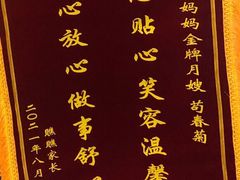 妈妈金牌月嫂 苟春菊
贴心笑容温馨
心放心做事舒
瞧瞧家长
二〇二一年八月